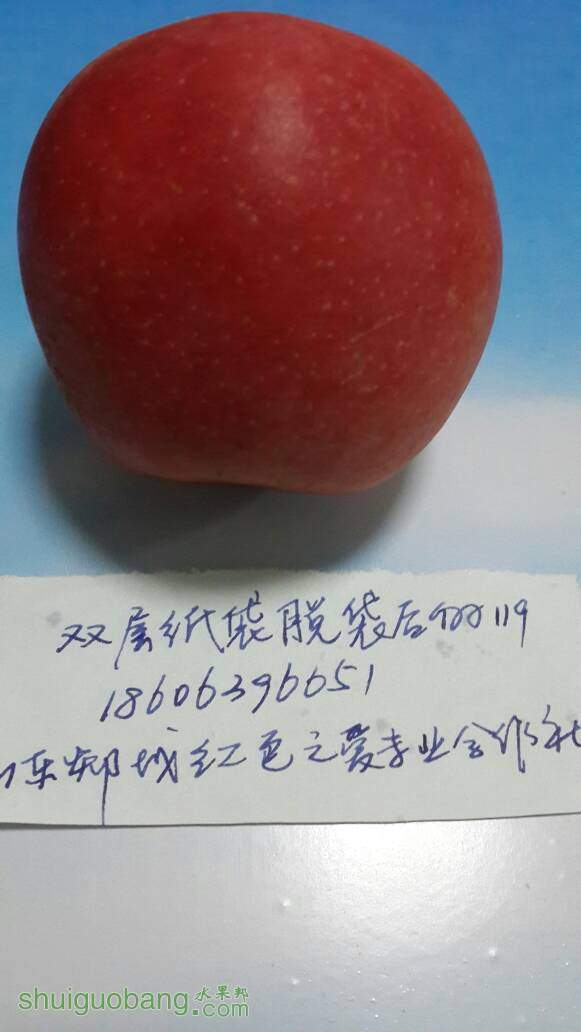 双层纸袋脱袋后222119
18606396651
山东郯城红色之爱专业合作社
水果邦
shuiguobang.com